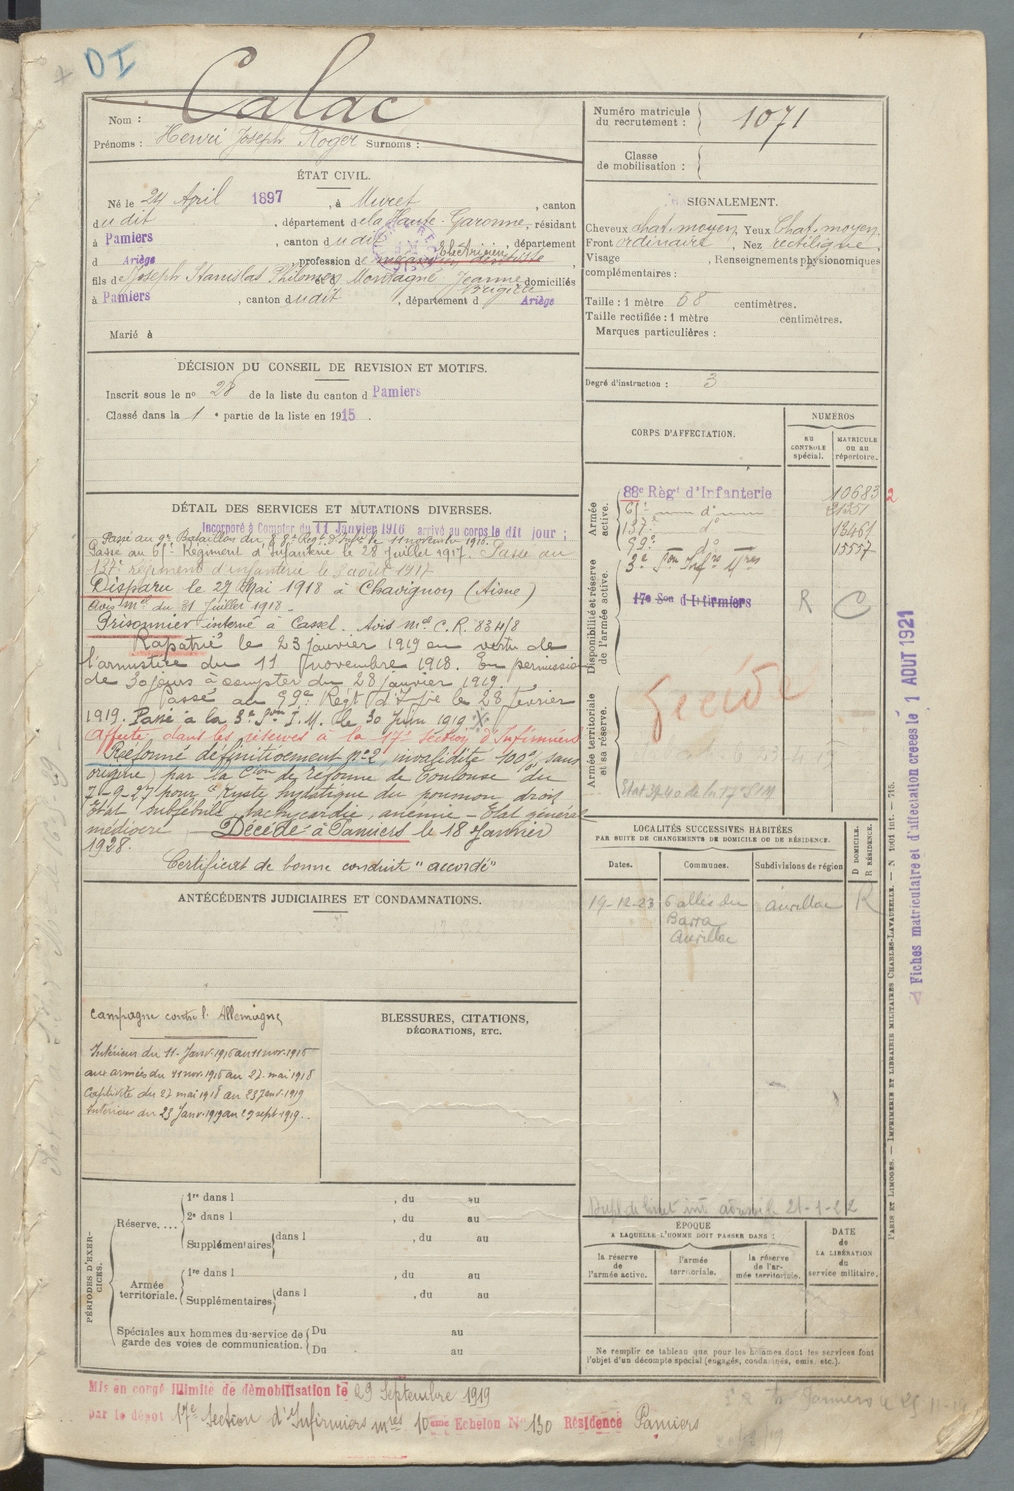 DI
Nom : Calac
Prénoms : Henri Joseph Roger Surnoms :
Numéro matricule du recrutement : 1071
Classe de mobilisation :
ÉTAT CIVIL.
Né le 24 April 1897, à Muret, canton
dudit, département de la Haute-Garonne, résidant
à Pamiers, canton dudit, département
d Ariège, profession de Electricien
fils de Joseph Stanislas Philomen et d Montagné Jeanne, domiciliés
à Pamiers, canton dudit, département d Ariège
Marié à
SIGNALEMENT.
Cheveux chat. moyen, Yeux Chat. moyen.
Front ordinaire, Nez rectiligne.
Visage , Renseignements physionomiques
complémentaires :
Taille : 1 mètre 68 centimètres.
Taille rectifiée : 1 mètre centimètres.
Marques particulières :
Degré d'instruction : 3
DÉCISION DU CONSEIL DE REVISION ET MOTIFS.
Inscrit sous le no 28 de la liste du canton d Pamiers
Classé dans la 1 e partie de la liste en 1915.
CORPS D'AFFECTATION.
NUMÉROS
AU CONTRÔLE spécial.
MATRICULE OU AU répertoire.
Armée active.
88e Régt d'Infanterie 10683 2
61e do 21351
137e do 13461
99e do 15557
3e Son Infres Mres
Disponibilité et réserve de l'armée active.
17e Son d'Infirmiers R C
Armée territoriale et sa réserve.
DÉTAIL DES SERVICES ET MUTATIONS DIVERSES.
Incorporé à Compter du 11 Janvier 1916 arrivé au corps le dit jour ;
Passé au 9e Bataillon du 88e Régt d'Infie le 11 novembre 1916.
Passé au 61e Régiment d'Infanterie le 28 juillet 1917. Passé au
137e régiment d'infanterie le 3 août 1917
Disparu le 27 Mai 1918 à Chavignon (Aisne)
Avis Mel du 31 Juillet 1918 -
Prisonnier interné à Cassel. Avis Mel C.R. 8341/8
Rapatrié le 23 janvier 1919 en vertu de
l'armistice du 11 novembre 1918. En permission
de 30 jours à compter du 28 janvier 1919.
Passé au 99e Régt d'Infie le 28 février
1919. Passé à la 3e Son I.M. le 30 Juin 1919.
Affecté dans les réserves à la 17e Section d'Infirmiers
Réformé définitivement no 2, invalidité 100% sans
origine) par la Cion de Réforme de Toulouse du
7-9-27 pour "Kyste hydatique du poumon droit
Etat subfébrile, tachycardie, anémie - Etat général
médiocre Décédé à Pamiers le 18 Janvier
1928.
Certificat de bonne conduite "accordé"
LOCALITÉS SUCCESSIVES HABITÉES
PAR SUITE DE CHANGEMENTS DE DOMICILE OU DE RÉSIDENCE.
Dates. Communes. Subdivisions de région D DOMICILE. R RÉSIDENCE.
19-12-23 6 allée du Barra Aurillac Aurillac R
ANTÉCÉDENTS JUDICIAIRES ET CONDAMNATIONS.
Campagne contre l'Allemagne
Intérieur du 11-Janv-1916 au 11 nov-1916
aux armées du 11 nov. 1916 au 27-mai 1918
Captivité du 27 mai 1918 au 23 Janv-1919
Intérieur du 23 Janv-1919 au 29 sept-1919.
BLESSURES, CITATIONS,
DÉCORATIONS, ETC.
PÉRIODES D'EXERCICES.
Réserve....
1re dans l , du au
2e dans l , du au
Supplémentaires dans l , du au
Armée territoriale.
1re dans l , du au
Supplémentaires dans l , du au
Spéciales aux hommes du service de garde des voies de communication.
Du au
Du au
ÉPOQUE
A LAQUELLE L'HOMME DOIT PASSER DANS :
la réserve de l'armée active.
l'armée territoriale.
la réserve de l'armée territoriale.
DATE de LA LIBÉRATION du service militaire.
Ne remplir ce tableau que pour les hommes dont les services font
l'objet d'un décompte spécial (engagés, condamnés, omis, etc.).
Mis en congé illimité de démobilisation le 29 Septembre 1919
par le dépôt 17e Section d'Infirmiers mres 10ème Echelon No 130 Résidence Pamiers
Fiches matriculaire et d'affectation créées le 1 AOUT 1921
PARIS ET LIMOGES. — IMPRIMERIE ET LIBRAIRIE MILITAIRES CHARLES-LAVAUZELLE.